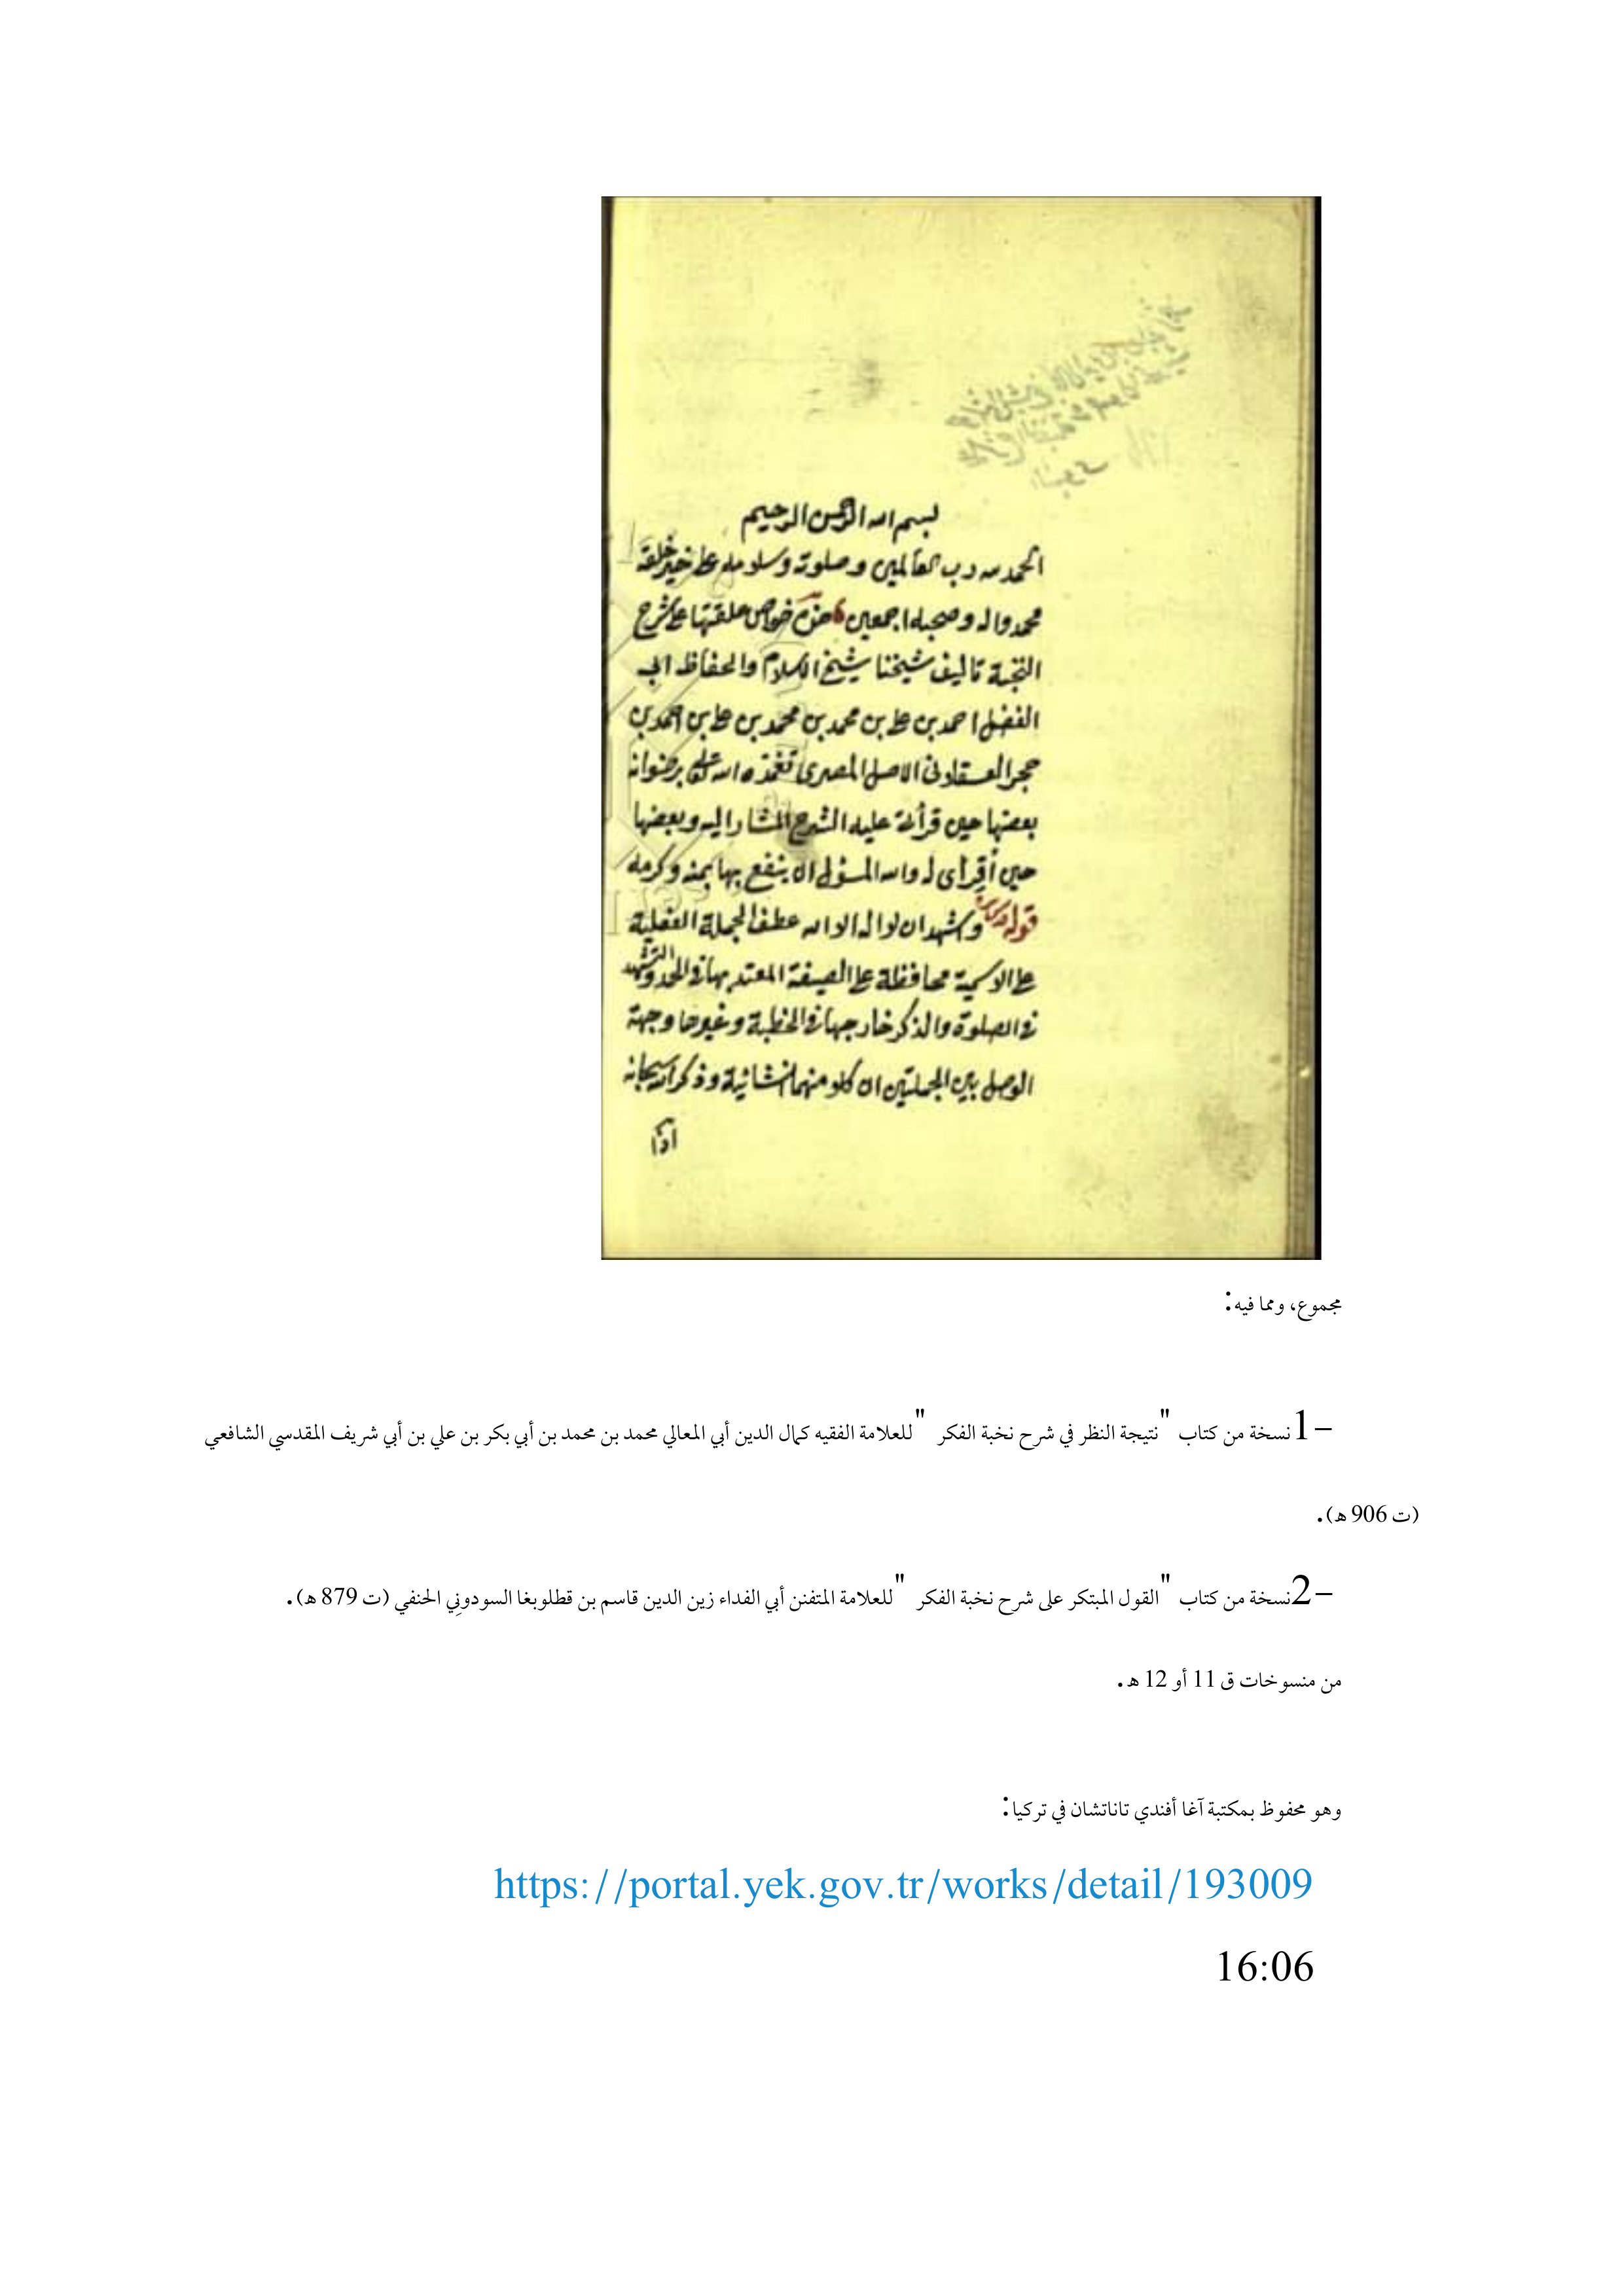 بسم الله الرحمن الرحيم
الحمد لله رب العالمين وصلوته وسلامه على خير خلقه
محمد واله وصحبه اجمعين خواص علقتها على شرح
النخبة تاليف شيخنا شيخ الاسلام والحفاظ ابي
الفضل احمد بن على بن محمد بن محمد بن على بن احمد بن
حجر العسقلانى الاصل المصرى تغمده الله تعالى برضوانه
بعضها حين قرأته عليه الشرح المشار اليه وبعضها
حين أقراى له والله المسؤل ان ينفع بها بمنه وكرمه
قوله واشهد ان لا اله الا الله عطف الجملة الفعلية
على الاسمية محافظة على الصيغة المعتد بها فى الحمد والتشهد
فى الصلوة والذكر خارجها فى الخطبة وغيرها وجهة
الوصل بين الجملتين ان كلا منهما انشائية وذكر سبحانه
مجموع، ومما فيه:
1- نسخة من كتاب "نتيجة النظر في شرح نخبة الفكر " للعلامة الفقيه كمال الدين أبي المعالي محمد بن محمد بن أبي بكر بن علي بن أبي شريف المقدسي الشافعي
(ت 906 هـ).
2- نسخة من كتاب "القول المبتكر على شرح نخبة الفكر " للعلامة المتفنن أبي الفداء زين الدين قاسم بن قطلوبغا السودوني الحنفي (ت 879 هـ).
من منسوخات ق 11 أو 12 هـ.
وهو محفوظ بمكتبة آغا أفندي تاناتشان في تركيا:
https://portal.yek.gov.tr/works/detail/193009
16:06